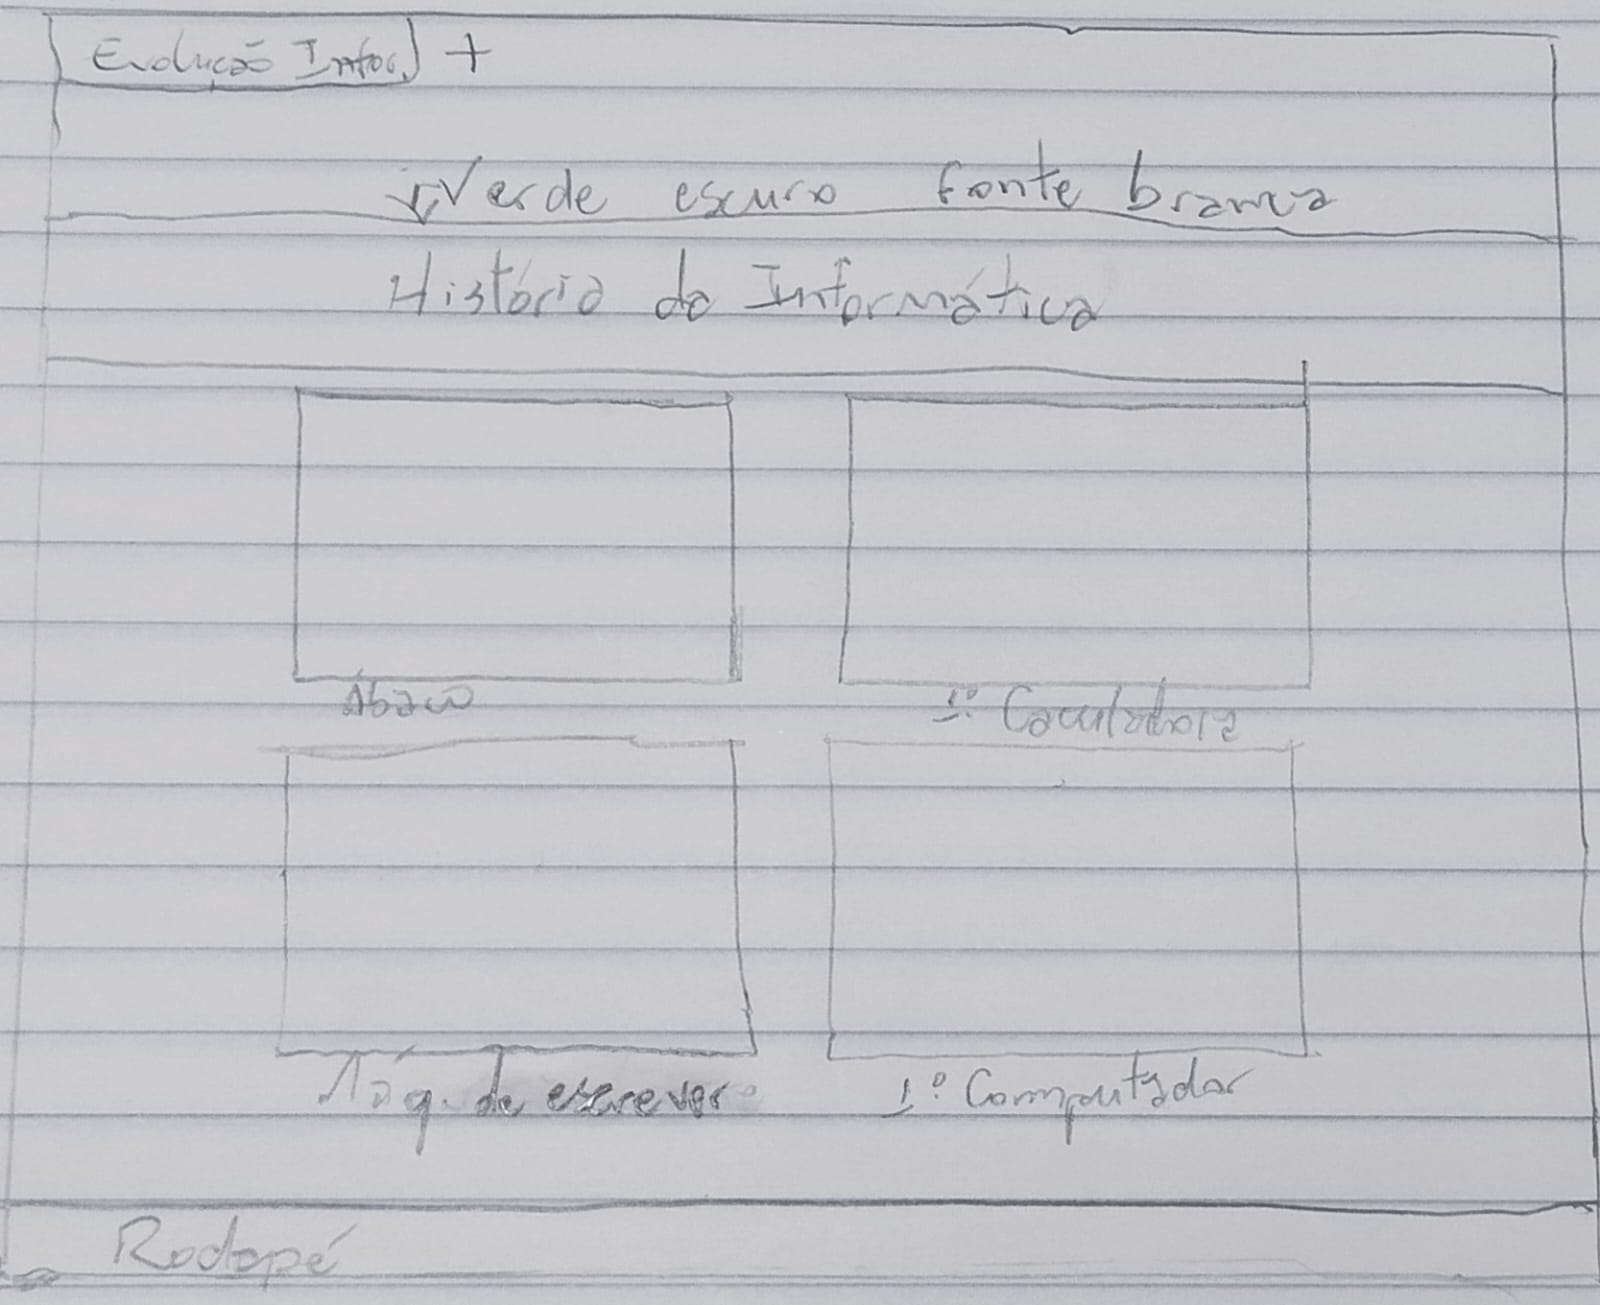 Evolução Infor. +
↓ Verde escuro fonte branca
História da Informática
Ábaco
1º. Caculadora
Máq. de escrever
1º. Computador
Rodapé